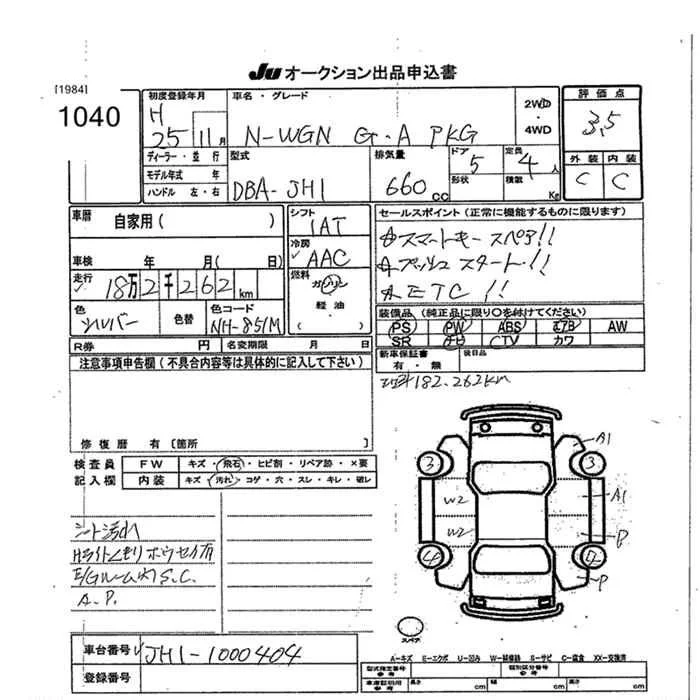 JU オークション出品申込書
[1984]
1040
初度登録年月
H
25 11月
車名・グレード
N-WGN G・A PKG
2WD
・
4WD
評価点
3.5
外装 内装
C C
ディーラー・並行
モデル年式 年
ハンドル 左・右
型式
DBA-JH1
排気量
660 cc
ドア
5
形状
定員
4 人
積載 Kg
車歴 自家用( )
車検 年 月( 日)
走行
18万2千262km
色
シルバー
色替
色コード
NH-851M
シフト
IAT
冷房
AAC
燃料
ガソリン
・
軽油
セールスポイント(正常に機能するものに限ります)
スマートキー スペア!!
プッシュスタート!!
ETC !!
装備品(純正品に限り○を付けてください)
PS PW ABS エアB AW
SR ナビ CTV カワ
新車保証書
有・無
後日品
182,262km
R券 円 名変期限 月 日
注意事項申告欄(不具合内容等は具体的に記入して下さい)
修復歴 有〔箇所 〕
検査員
記入欄
FW キズ・飛石・ヒビ割・リペア跡・×要
内装 キズ・汚れ・コゲ・穴・スレ・キレ・破レ
シート汚れ
S.C.
A.P.
A1
3 3
W2 A1
W2 P
4 4
P
スペア
A-キズ E-エクボ U-凹み W-補修跡 S-サビ C-腐食 XX-交換済
車台番号 JH1-1000404
登録番号
型式指定番号
参考
類別区分番号
参考
車庫証明用
参考
長さ cm 幅 cm 高さ cm